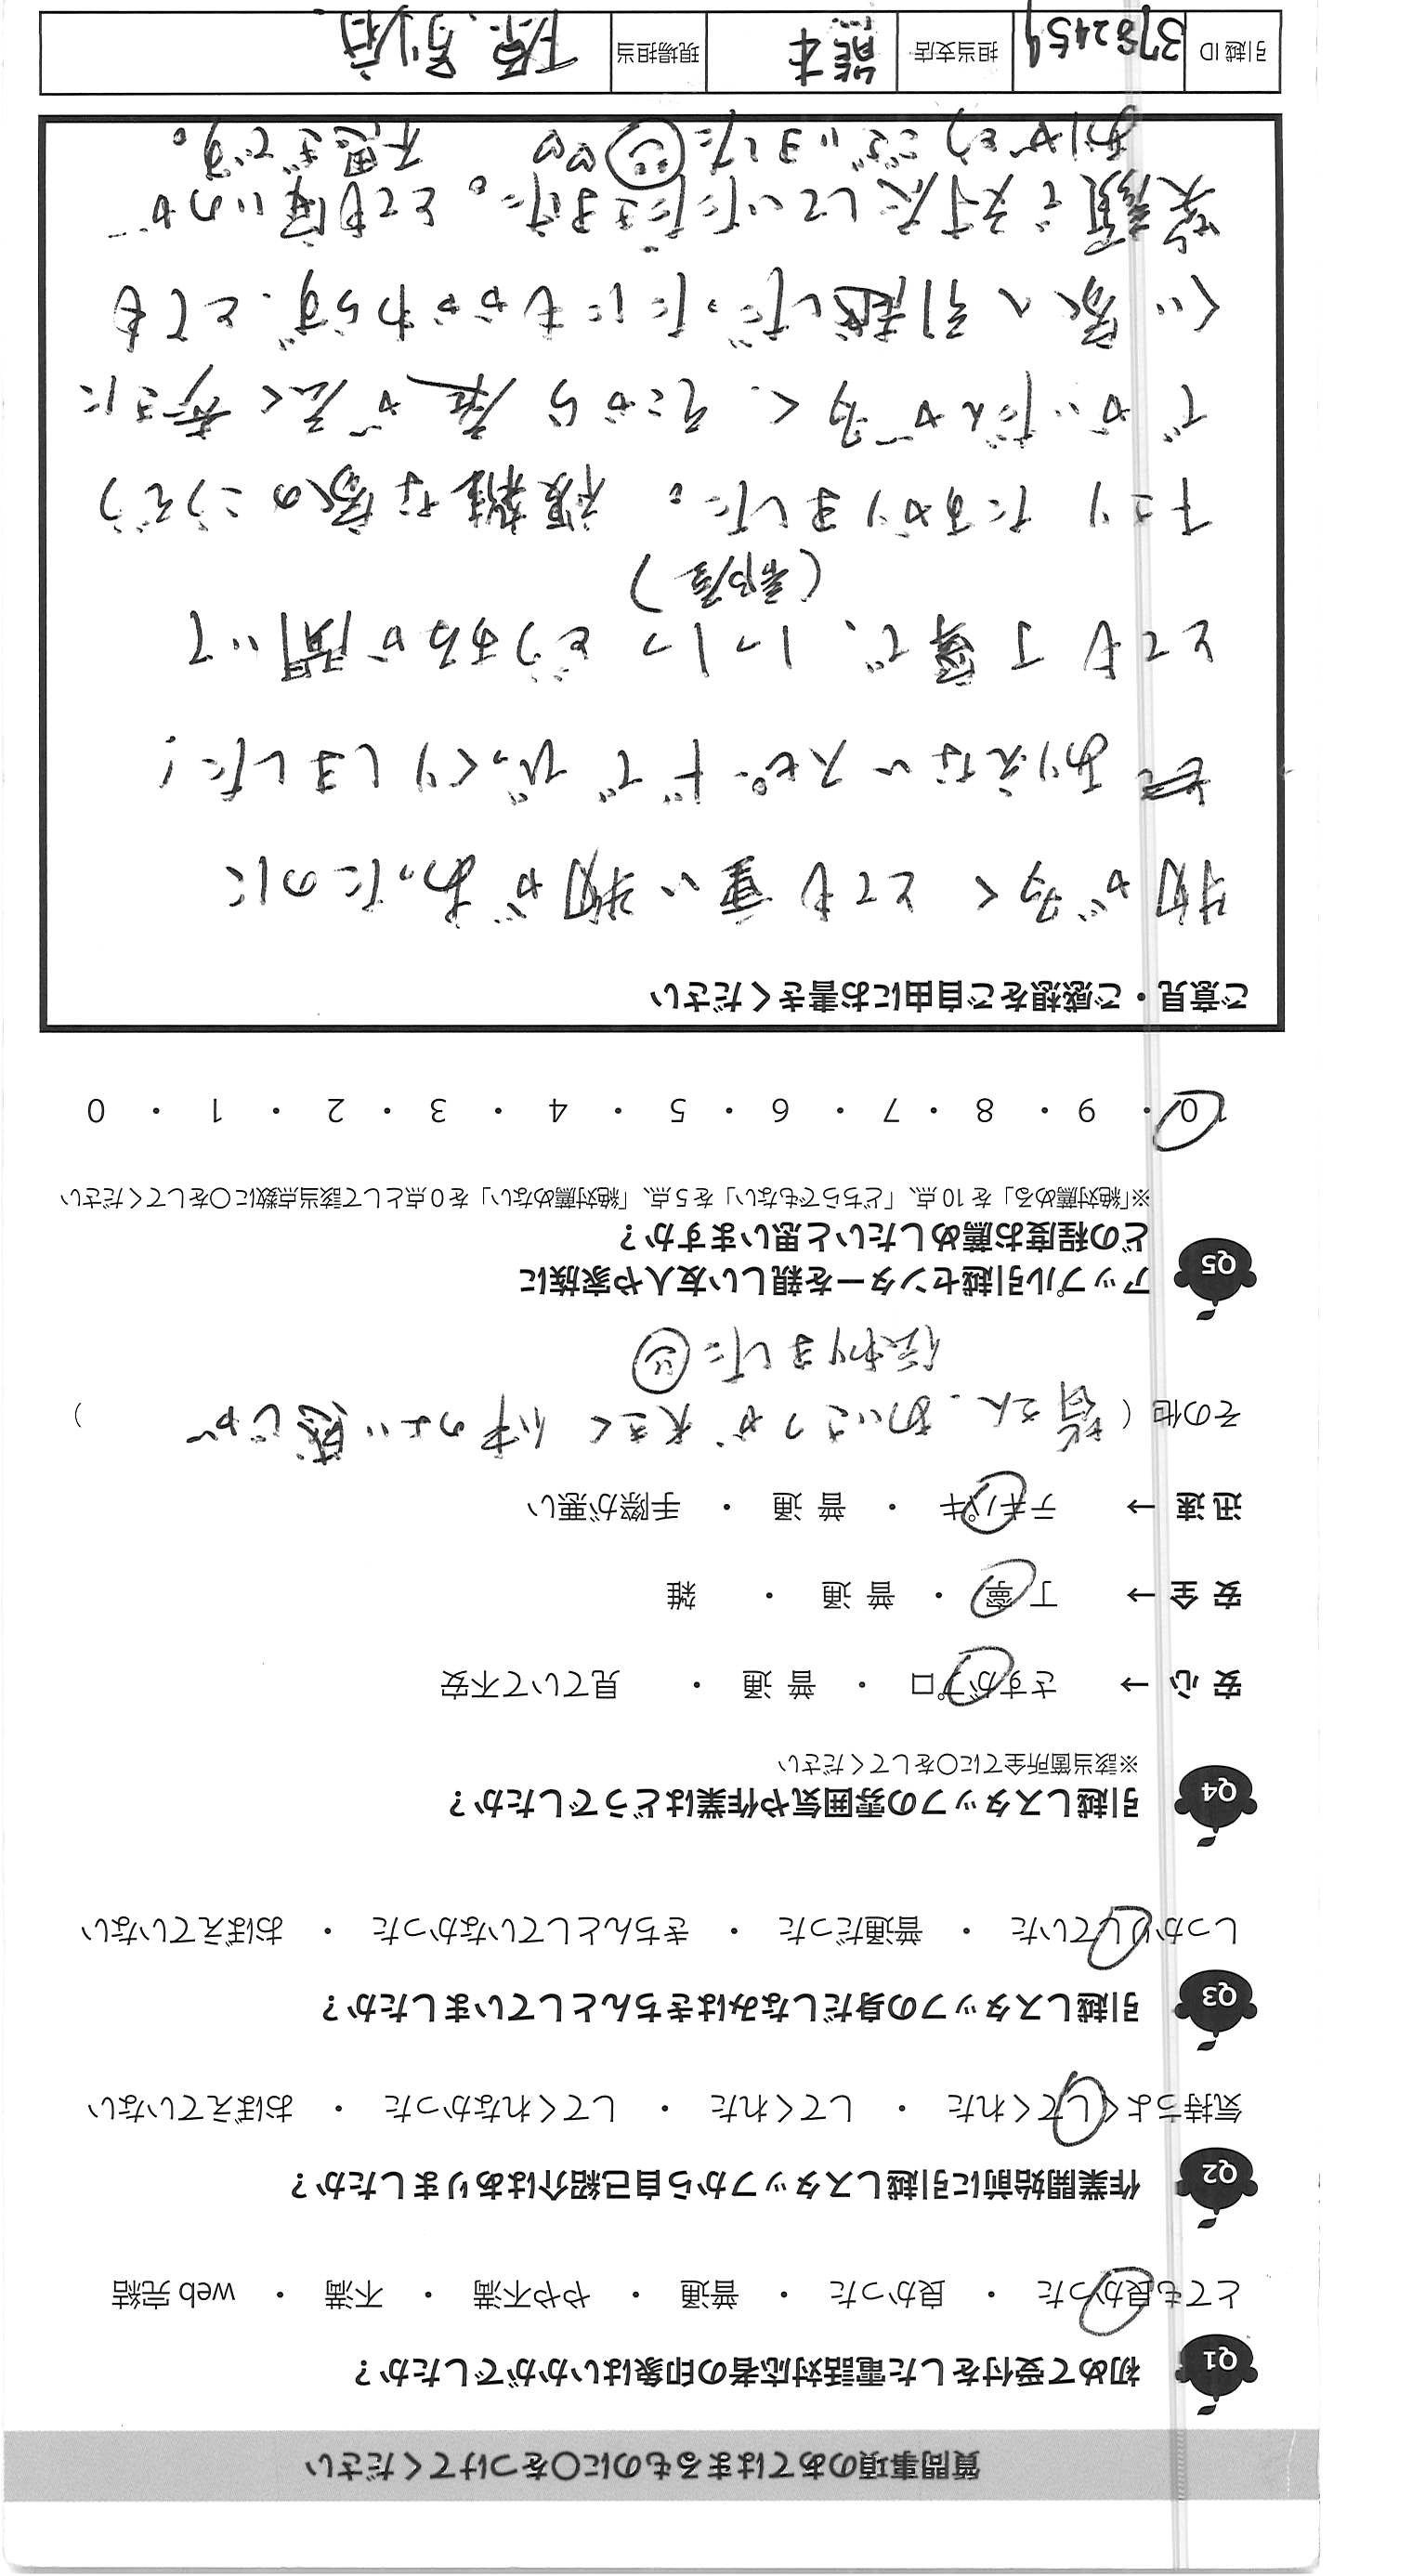 質問事項のあてはまるものに○をつけてください
Q1 初めて受付をした電話対応者の印象はいかがでしたか？
とても良かった ・ 良かった ・ 普通 ・ やや不満 ・ 不満 ・ web 完結
Q2 作業開始前に引越しスタッフから自己紹介はありましたか？
気持ちよくしてくれた ・ してくれた ・ してくれなかった ・ おぼえていない
Q3 引越しスタッフの身だしなみはきちんとしていましたか？
しっかりしていた ・ 普通だった ・ きちんとしていなかった ・ おぼえていない
Q4 引越しスタッフの雰囲気や作業はどうでしたか？
※該当箇所全てに○をしてください
安心→ さすがプロ ・ 普通 ・ 見ていて不安
安全→ 丁寧 ・ 普通 ・ 雑
迅速→ テキパキ ・ 普通 ・ 手際が悪い
その他（皆さん、あいさつが大きく仲のよい感じが
伝わりました ）
Q5 アップル引越センターを親しい友人や家族に
どの程度お薦めしたいと思いますか？
※「絶対薦める」を 10 点、「どちらでもない」を 5 点、「絶対薦めない」を 0 点として該当点数に○をしてください
10 ・ 9 ・ 8 ・ 7 ・ 6 ・ 5 ・ 4 ・ 3 ・ 2 ・ 1 ・ 0
ご意見・ご感想をご自由にお書きください
物が多くとても重い物があったのに
ありえないスピードでびっくりしました！
とても丁寧で、1つ1つどうするか聞いて
（部屋）
下さりたすかりました。複雑な家のこうぞう
でかいだんが多く、そこから庭が広く寺さに
くい家へ引越しだったにもかかわらず、とても
笑顔で対応していただきました。とても安いのが
ありがとうございました♡♡ 不思ぎです。
引越 ID 3782459 担当支店 熊本 現場担当 原、別府